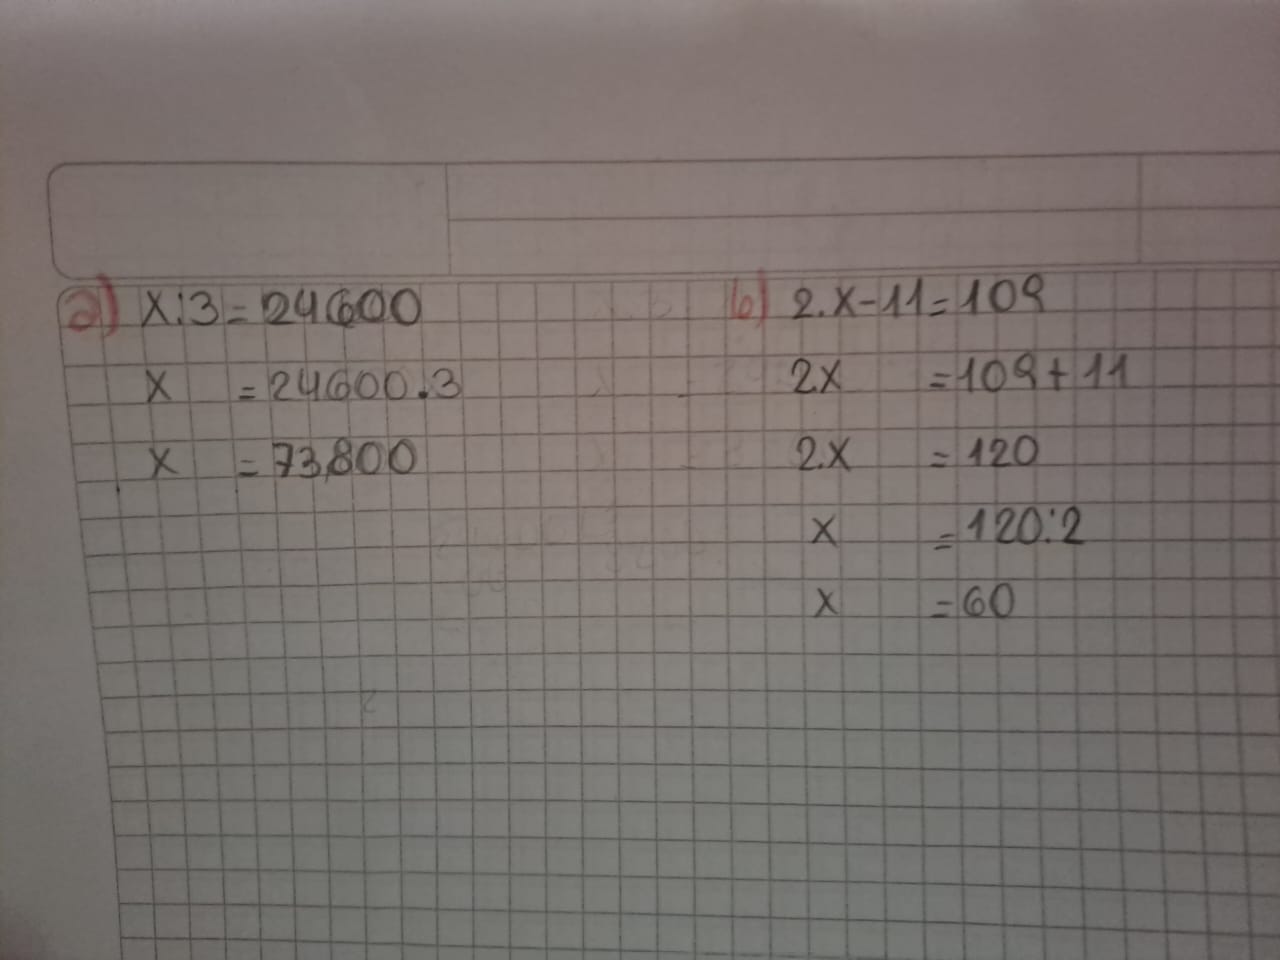 a) x:3 = 24600
x = 24600.3
x = 73,800
b) 2.x-11 = 109
2x = 109+11
2.x = 120
x = 120:2
x = 60